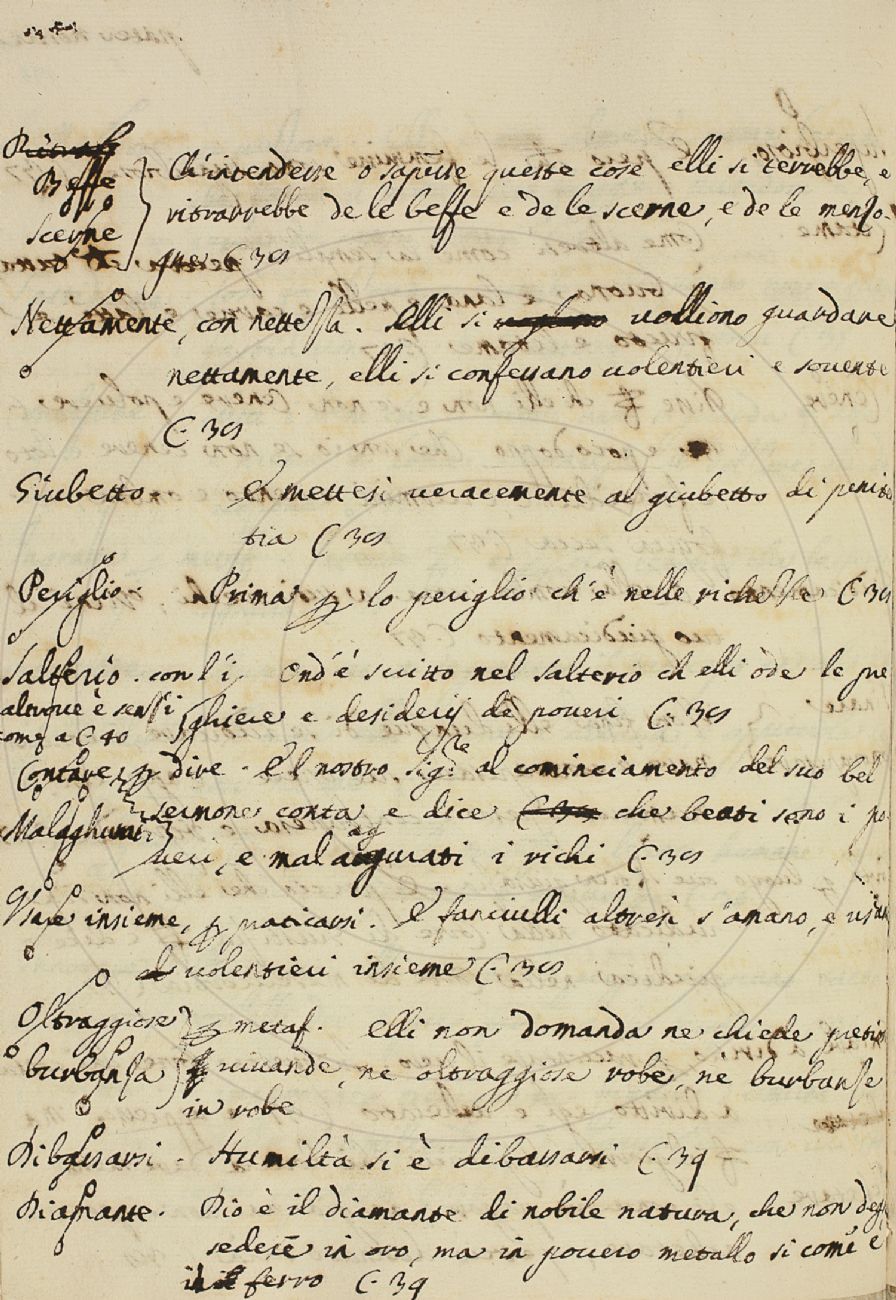 Beffe
scerne
Ch'intendesse o sapesse queste cose elli si terrebbe, e
ritrarrebbe de le beffe e de le scerne, e de le menso-
gne C 39
Nettamente, con nettessa. Elli si volliono guardare
nettamente, elli si confessano volentieri e sovente
C. 39
Giubetto E mettesi veracemente al giubetto di peniten
tia C 39
Periglio. Prima p lo periglio ch'è nelle richesse C 39
Salterio. con l'i Ond'è scritto nel salterio ch elli òde le pre
altrove è senz'i ghiere e desiderij de poveri C. 39
come a C 40
Contare p dire. El nostro Sigre al cominciamento del suo bel
sermone conta e dice che beati sono i po
Malaghurati veri, e malagurati i richi C. 39
Usare insieme, p praticarsi. E fanciulli altresì s'amano, e usan
volentieri insieme C. 39
Oltraggiose p metaf. Elli non domanda ne chiede
burbansa vivande, ne oltraggiose robe, ne burbanse
in robe
Dibassarsi. Humiltà si è dibassarsi C. 39
Diamante. Dio è il diamante di nobile natura, che non
sedere in oro, ma in povero metallo si com'è
ferro C. 39